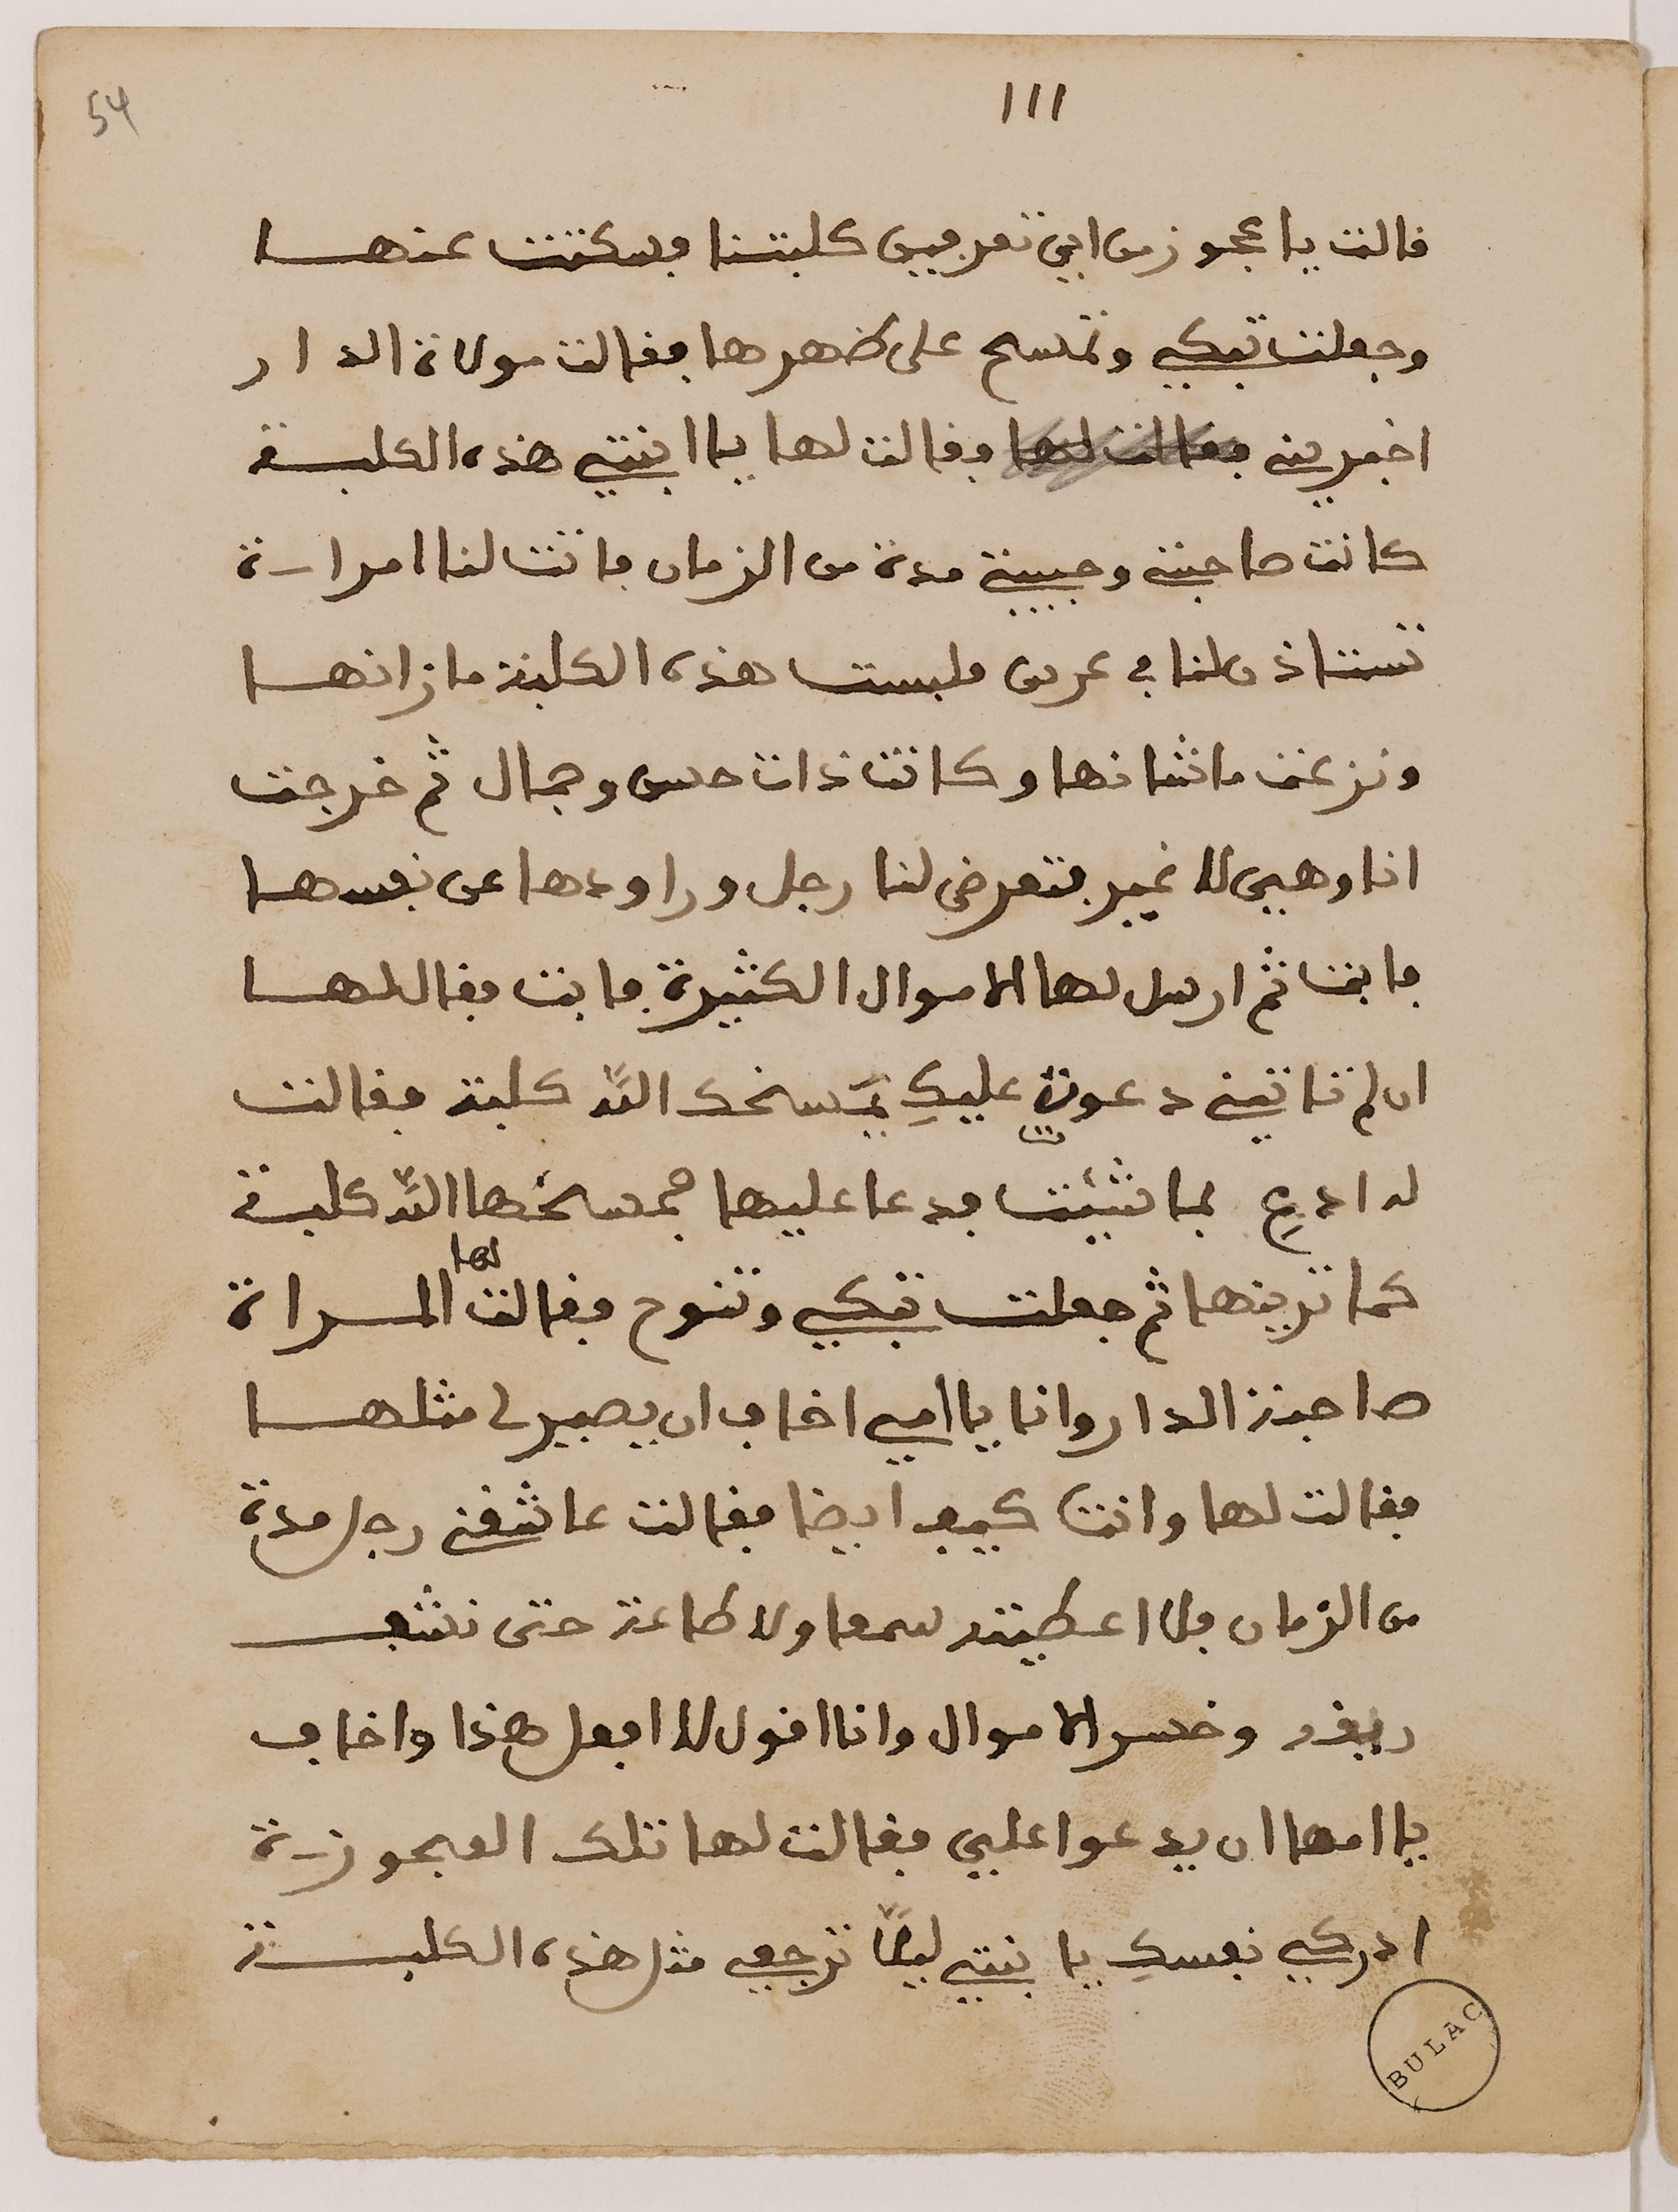 54
111
قالت يا عجوز من اين تعرفين كلبتنا فسكتت عنها
وجعلت تبكي وتمسح على ظهرها فقالت مولاة الدار
اخبريني فقالت لها وقالت لها يا ابنتي هذه الكلبة
كانت صاحبتي وحبيبتي مدة من الزمان فاتت لنا امراة
تستاذ ملنا في عرس فلبست هذه الكلبة ما زانها
ونزعت ما شانها وكانت ذات حسن وجمال ثم خرجت
انا وهيى لا غير فتعرض لنا رجل وراودها عن نفسها
فابت ثم ارسل لها الاموال الكثيرة فابت فقال لها
ان لم تاتيني دعوة عليكِ يمسخك اللّه كلبة فقالت
له ادعِ بما شئت فدعا عليها فمسخها اللّه كلبة
كما ترينها ثم جعلت تبكي وتنوح فقالت لها المراة
صاحبة الدار وانا يا أمي اخاف ان يصير لي مثلها
فقالت لها وانت كيف ايضا فقالت عاشقني رجل مدة
من الزمان فلا اعطيته سمعا ولا طاعة حتى نشف
ريقه وخسر الاموال وانا اقول لا افعل هذا واخاف
يا امها ان يدعوا عليى فقالت لها تلك العجوزة
ادركي نفسكِ يا بنتي ليلاً ترجعي مثل هذه الكلبة
BULAC